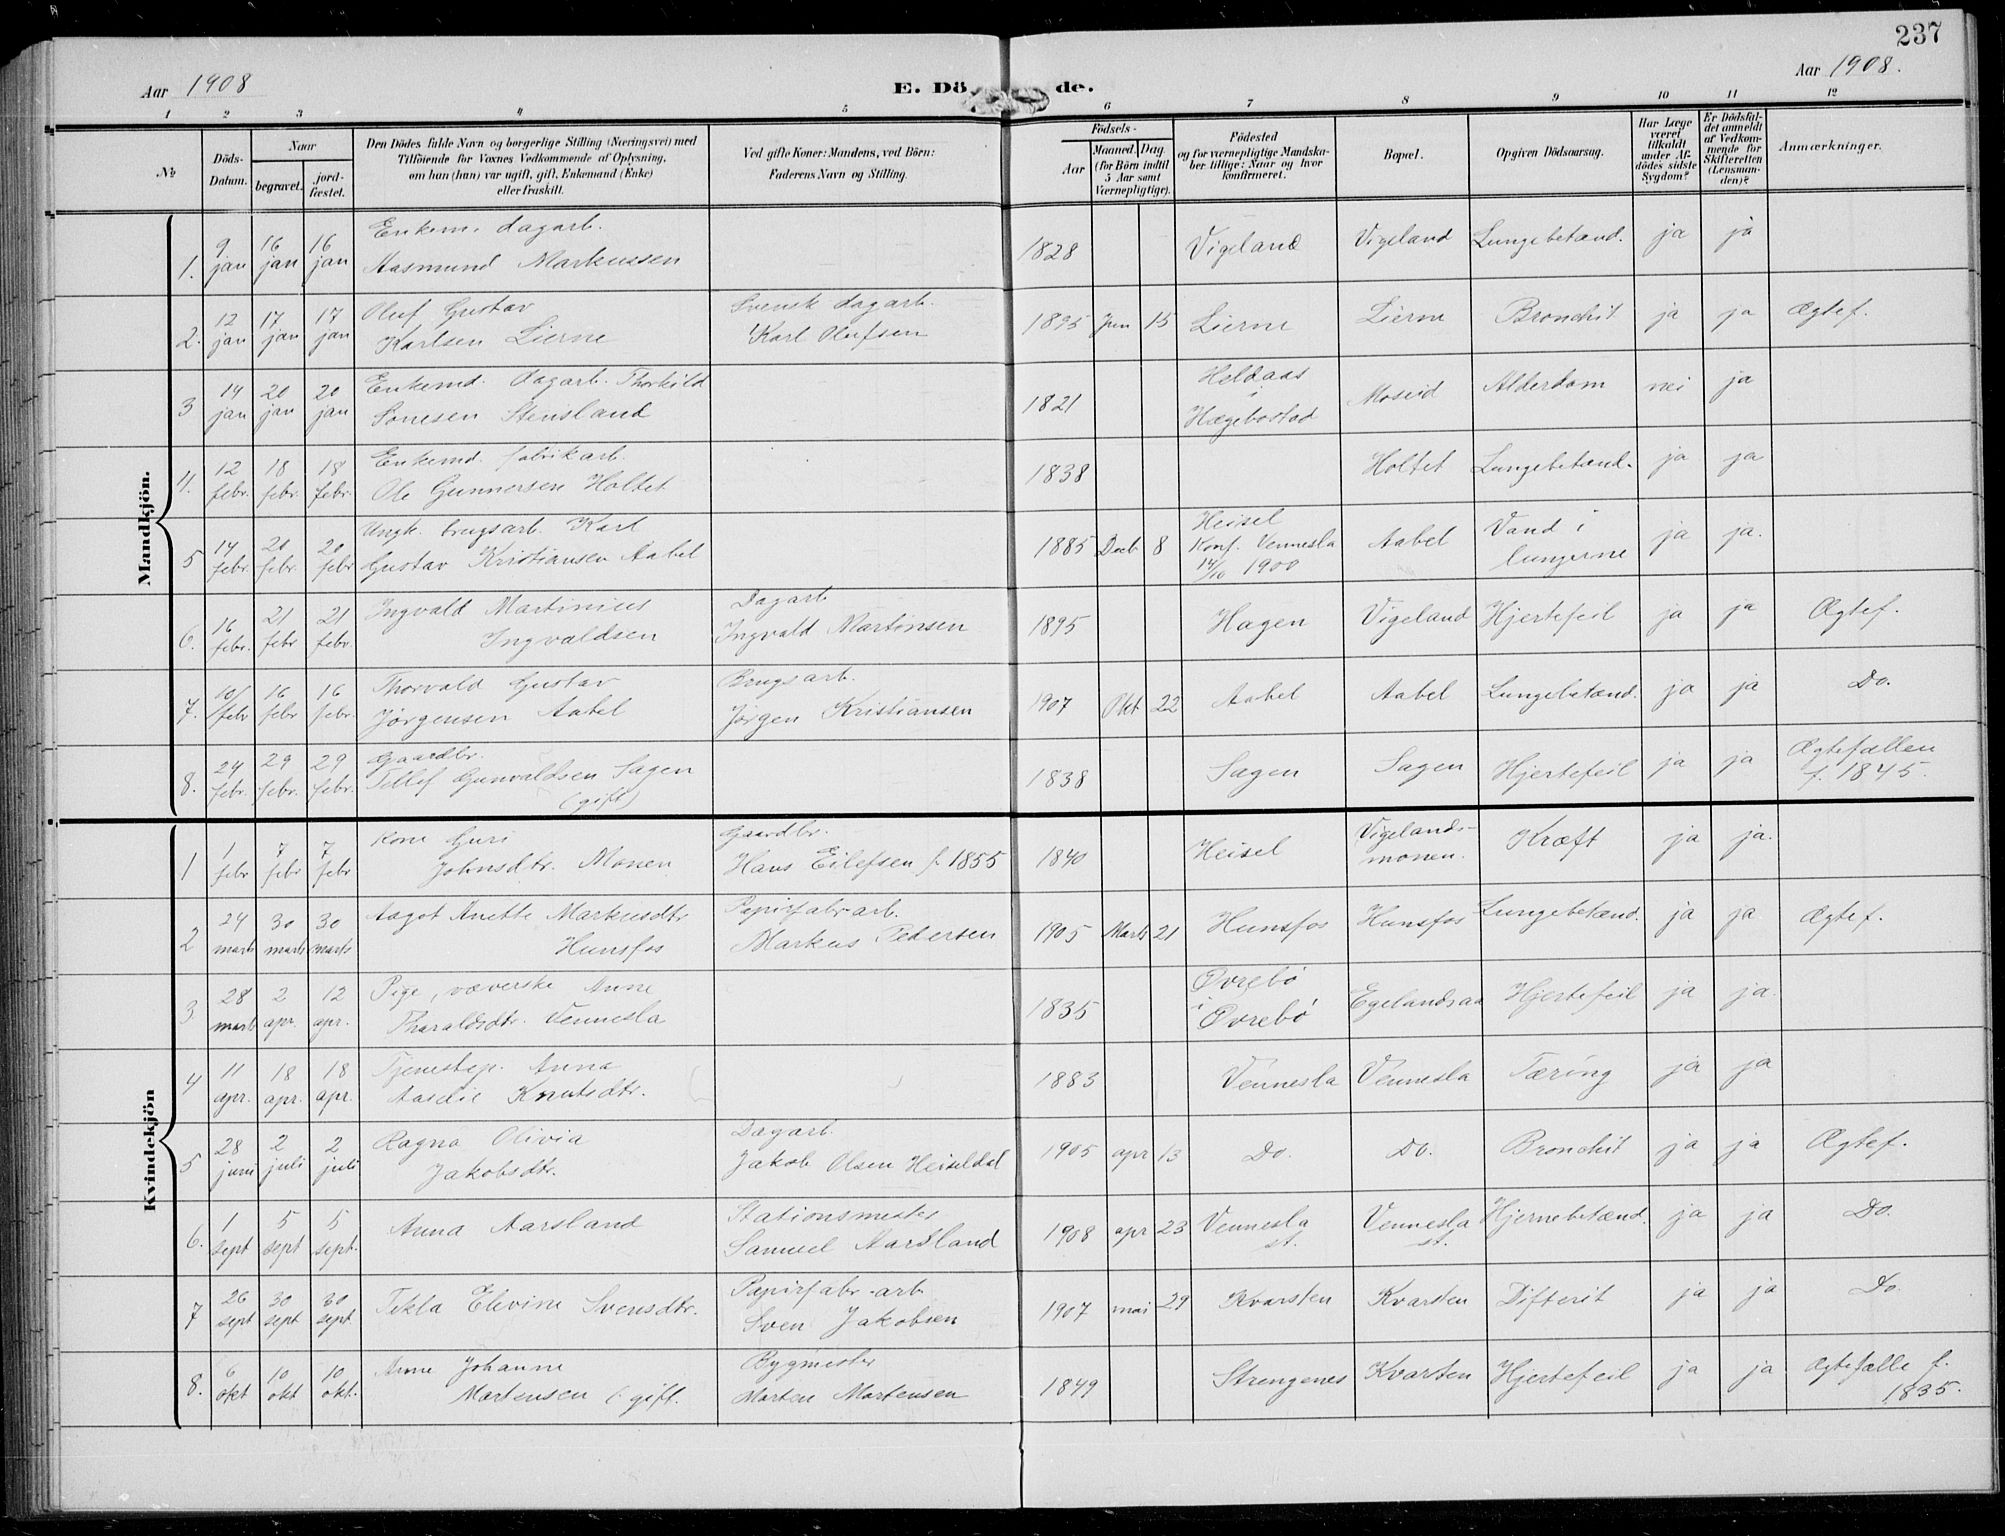 237
Aar 1908
E. Dö de.
Aar 1908.
1 2 3 4 5 6 7 8 9 10 11 12
№
Döds-Datum.
Naar
begravet.
jord-fæstet.
Den Dödes fulde Navn og borgerlige Stilling (Næringsvei) med
Tilföiende for Voxnes Vedkommende af Oplysning,
om han (hun) var ugift, gift, Enkemand (Enke)
eller fraskilt.
Ved gifte Koner: Mandens, ved Börn:
Faderens Navn og Stilling.
Födsels-
Aar
Maaned. Dag
(for Börn indtil
5 Aar samt
Værnepligtige).
Födested
og for værnepligtige Mandska-
ber tillige: Naar og hvor
konfirmeret.
Bopæl.
Opgiven Dödsaarsag.
Har Læge
været
tilkaldt
under Af-
dödes sidste
Sygdom?
Er Dödsfal-
det anmeldt
af Vedkom-
mende for
Skifteretten
(Lensman-
den)?
Anmærkninger.
Mandkjön.
1. 9 jan 16 jan 16 jan Enkem. dagarb.
Aasmund Markussen 1828 Vigeland Vigeland Lungebetænd. ja ja
2. 12 jan 17 jan 17 jan Oluf Gustav
Karlsen Lierne Svensk dagarb.
Karl Olufsen 1895 Jun 15 Lierne Lierne Bronchit ja ja Ægtef.
3 14 jan 20 jan 20 jan Enkemd. dagarb. Thorkild
Sonesen Stensland 1821 Heldaas
i
Hægebostad Moseid Alderdom nei ja
4. 12 febr. 18 febr. 18 febr. Enkemd. fabrikarb.
Ole Gunnersen Holtet 1838 Holtet Lungebetænd. ja ja
5 14 febr. 20 febr. 20 febr Ungk. brugsarb. Karl
Gustav Kristiansen Aabel 1885 Decb 8 Heisel
Konf. Vennesla
14/10 1900 Aabel Vand i
lungerne ja ja.
6. 16 febr. 21 febr 21 febr. Ingvald Martinius
Ingvaldsen Dagarb
Ingvald Martinsen 1895 Hagen Vigeland Hjertefeil ja ja Ægtef.
7. 10/febr 16 febr 16 febr. Thorvald Gustav
Jørgensen Aabel Brugsarb.
Jørgen Kristiansen 1907 Okt 22 Aabel Aabel Lungebetænd. ja ja Do.
8. 24 febr. 29 febr. 29 febr. Gaardbr.
Tellef Gunvaldsen Sagen
(gift) 1838 Sagen Sagen Hjertefeil ja ja Ægtefællen
f. 1845.
Kvindekjön
1 1 febr 7 febr 7 febr Kone Guri
Johnsdtr. Monen Gaardbr.
Hans Eilefsen f. 1855 1840 Heisel Vigelands-
monen. Kræft ja ja.
2 24 marts 30 marts 30 marts Aagot Anette Markusdtr
Hunsfos Papirfabr.arb.
Markus Pedersen 1905 Marts 21 Hunsfos Hunsfos Lungebetænd. ja ja. Ægtef.
3. 28 marts 2 apr. 12 apr. Pige, væverske Anne
Tharaldsdtr. Vennesla 1835 Øvrebö
i
Øvrebö Egelandsaa Hjertefeil ja ja.
4 11 apr. 18 apr. 18 apr. Tjenestep. Anna
Aasdie Knutsdtr. 1883 Vennesla Vennesla Tæring ja ja
5 28 juni 2 juli 2 juli Ragna Olivia
Jakobsdtr. Dagarb
Jakob Olsen Heiseldal 1905 apr 13 Do. Do. Bronchit ja ja Ægtef.
6. 1 sept 5 sept 5 sept. Anna Aarsland Stationsmester
Samuel Aarsland 1908 apr 23 Vennesla
st. Vennesla
st. Hjernebetænd. ja ja Do.
7 26 sept 30 sept 30 sept. Tekla Elevine Svensdtr. Papirfabr.-arb.
Sven Jakobsen 1907 mai 29 Kvarsten Kvarsten Difterit ja ja Do.
8. 6 okt 10 okt 10 okt. Anne Johanne
Martensen (gift. Bygmester
Morten Martensen 1849 Strengenes Kvarsten Hjertefeil ja ja Ægtefælle f.
1835.